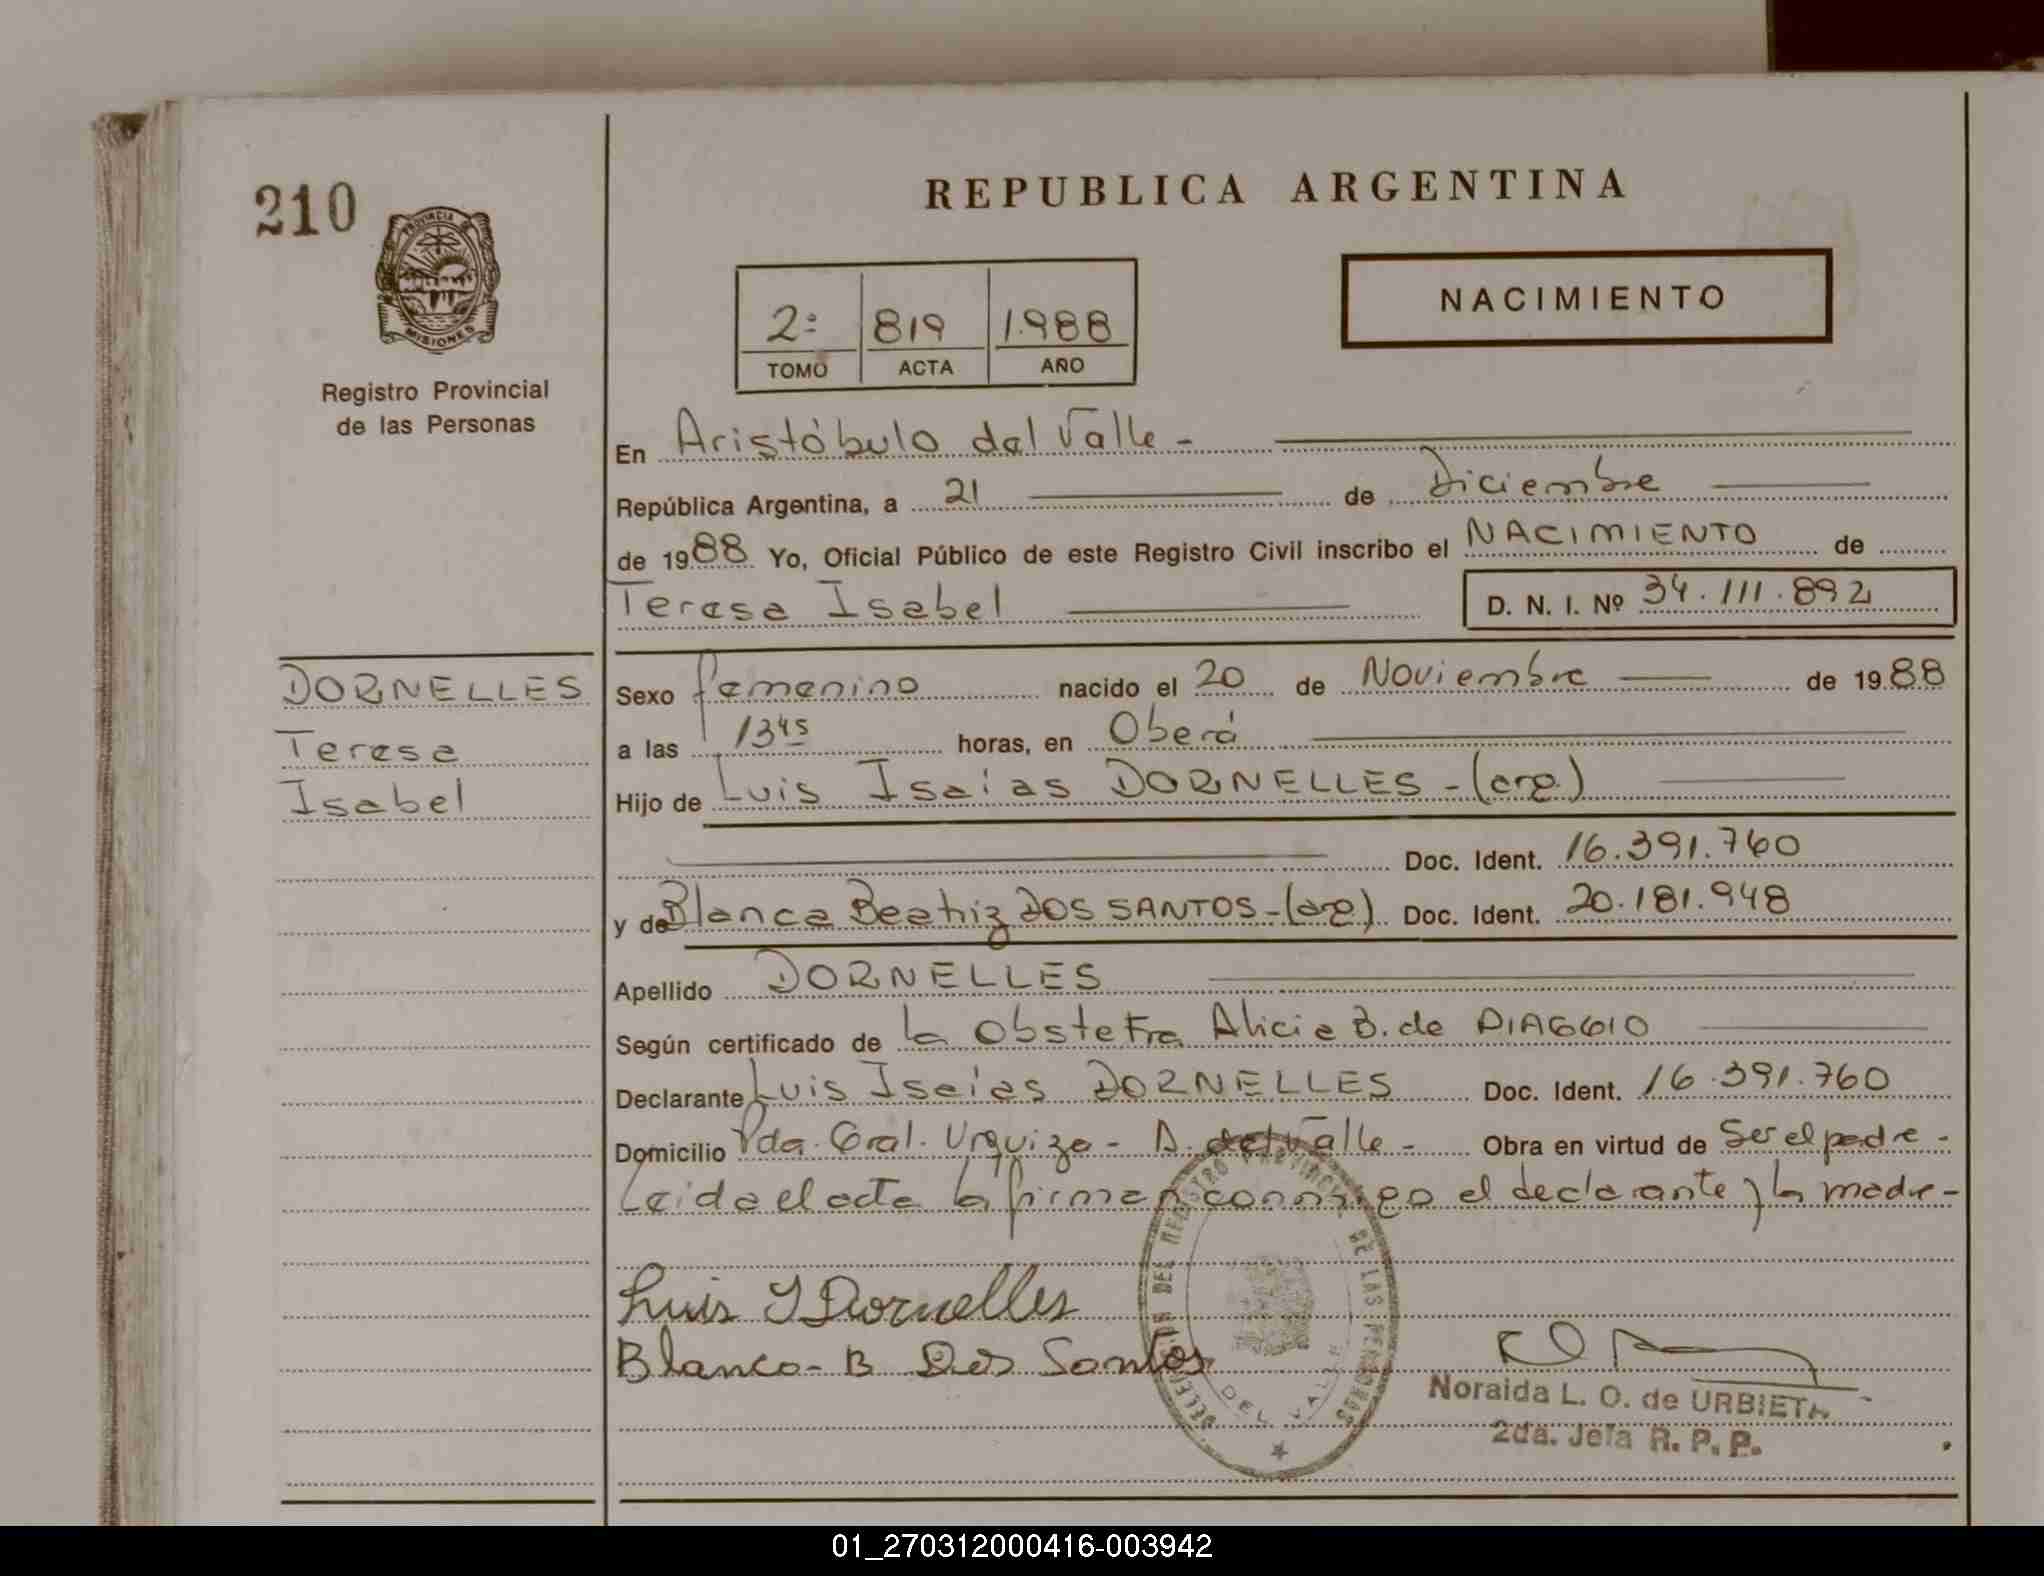 210
PROVINCIA DE
MISIONES
Registro Provincial
de las Personas
REPUBLICA ARGENTINA
2º 819 1.988
TOMO ACTA AÑO
NACIMIENTO
En Aristóbulo del Valle -
República Argentina, a 21 de Diciembre
de 1988 Yo, Oficial Público de este Registro Civil inscribo el NACIMIENTO de
Teresa Isabel D. N. I. Nº 34.111.892
DORNELLES
Teresa
Isabel
Sexo femenino nacido el 20 de Noviembre de 1988
a las 13 45 horas, en Oberá
Hijo de Luis Isaías DORNELLES - (arg.)
Doc. Ident. 16.391.760
y de Blanca Beatriz DOS SANTOS - (arg.) Doc. Ident. 20.181.948
Apellido DORNELLES
Según certificado de la Obstetra Alicia B. de
Declarante Luis Isaías DORNELLES Doc. Ident. 16.391.760
Domicilio Pda. Gral. Urquiza - A. del Valle - Obra en virtud de Ser el padre -
Leida el acta la firman conmigo el declarante y la madre -
Luis I Dornelles
Blanca - B Dos Santos
DELEGACION DEL REGISTRO PROVINCIAL DE LAS PERSONAS
DEL VALLE
Noraida L. O. de URBIETA
2da. Jefa R. P. P.
01_270312000416-003942